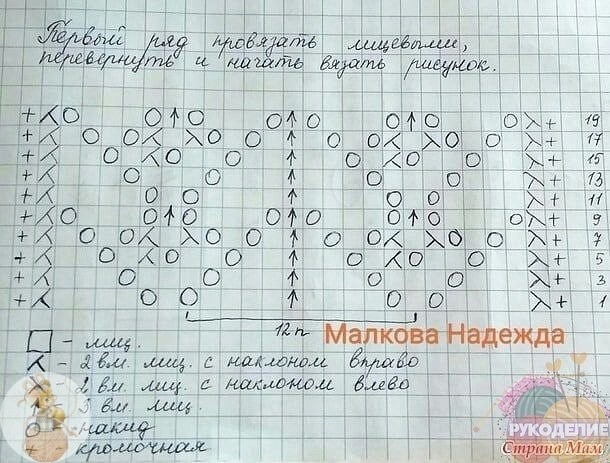 Первый ряд провязать лицевыми,
перевернуть и начать вязать рисунок.
19
17
15
13
11
9
7
5
3
1
12п
Малкова Надежда
- лиц.
- 2 вм. лиц. с наклоном вправо
- 2 вм. лиц. с наклоном влево
- 3 вм. лиц.
- накид
- кромочная
РУКОДЕЛИЕ
Страна Мам